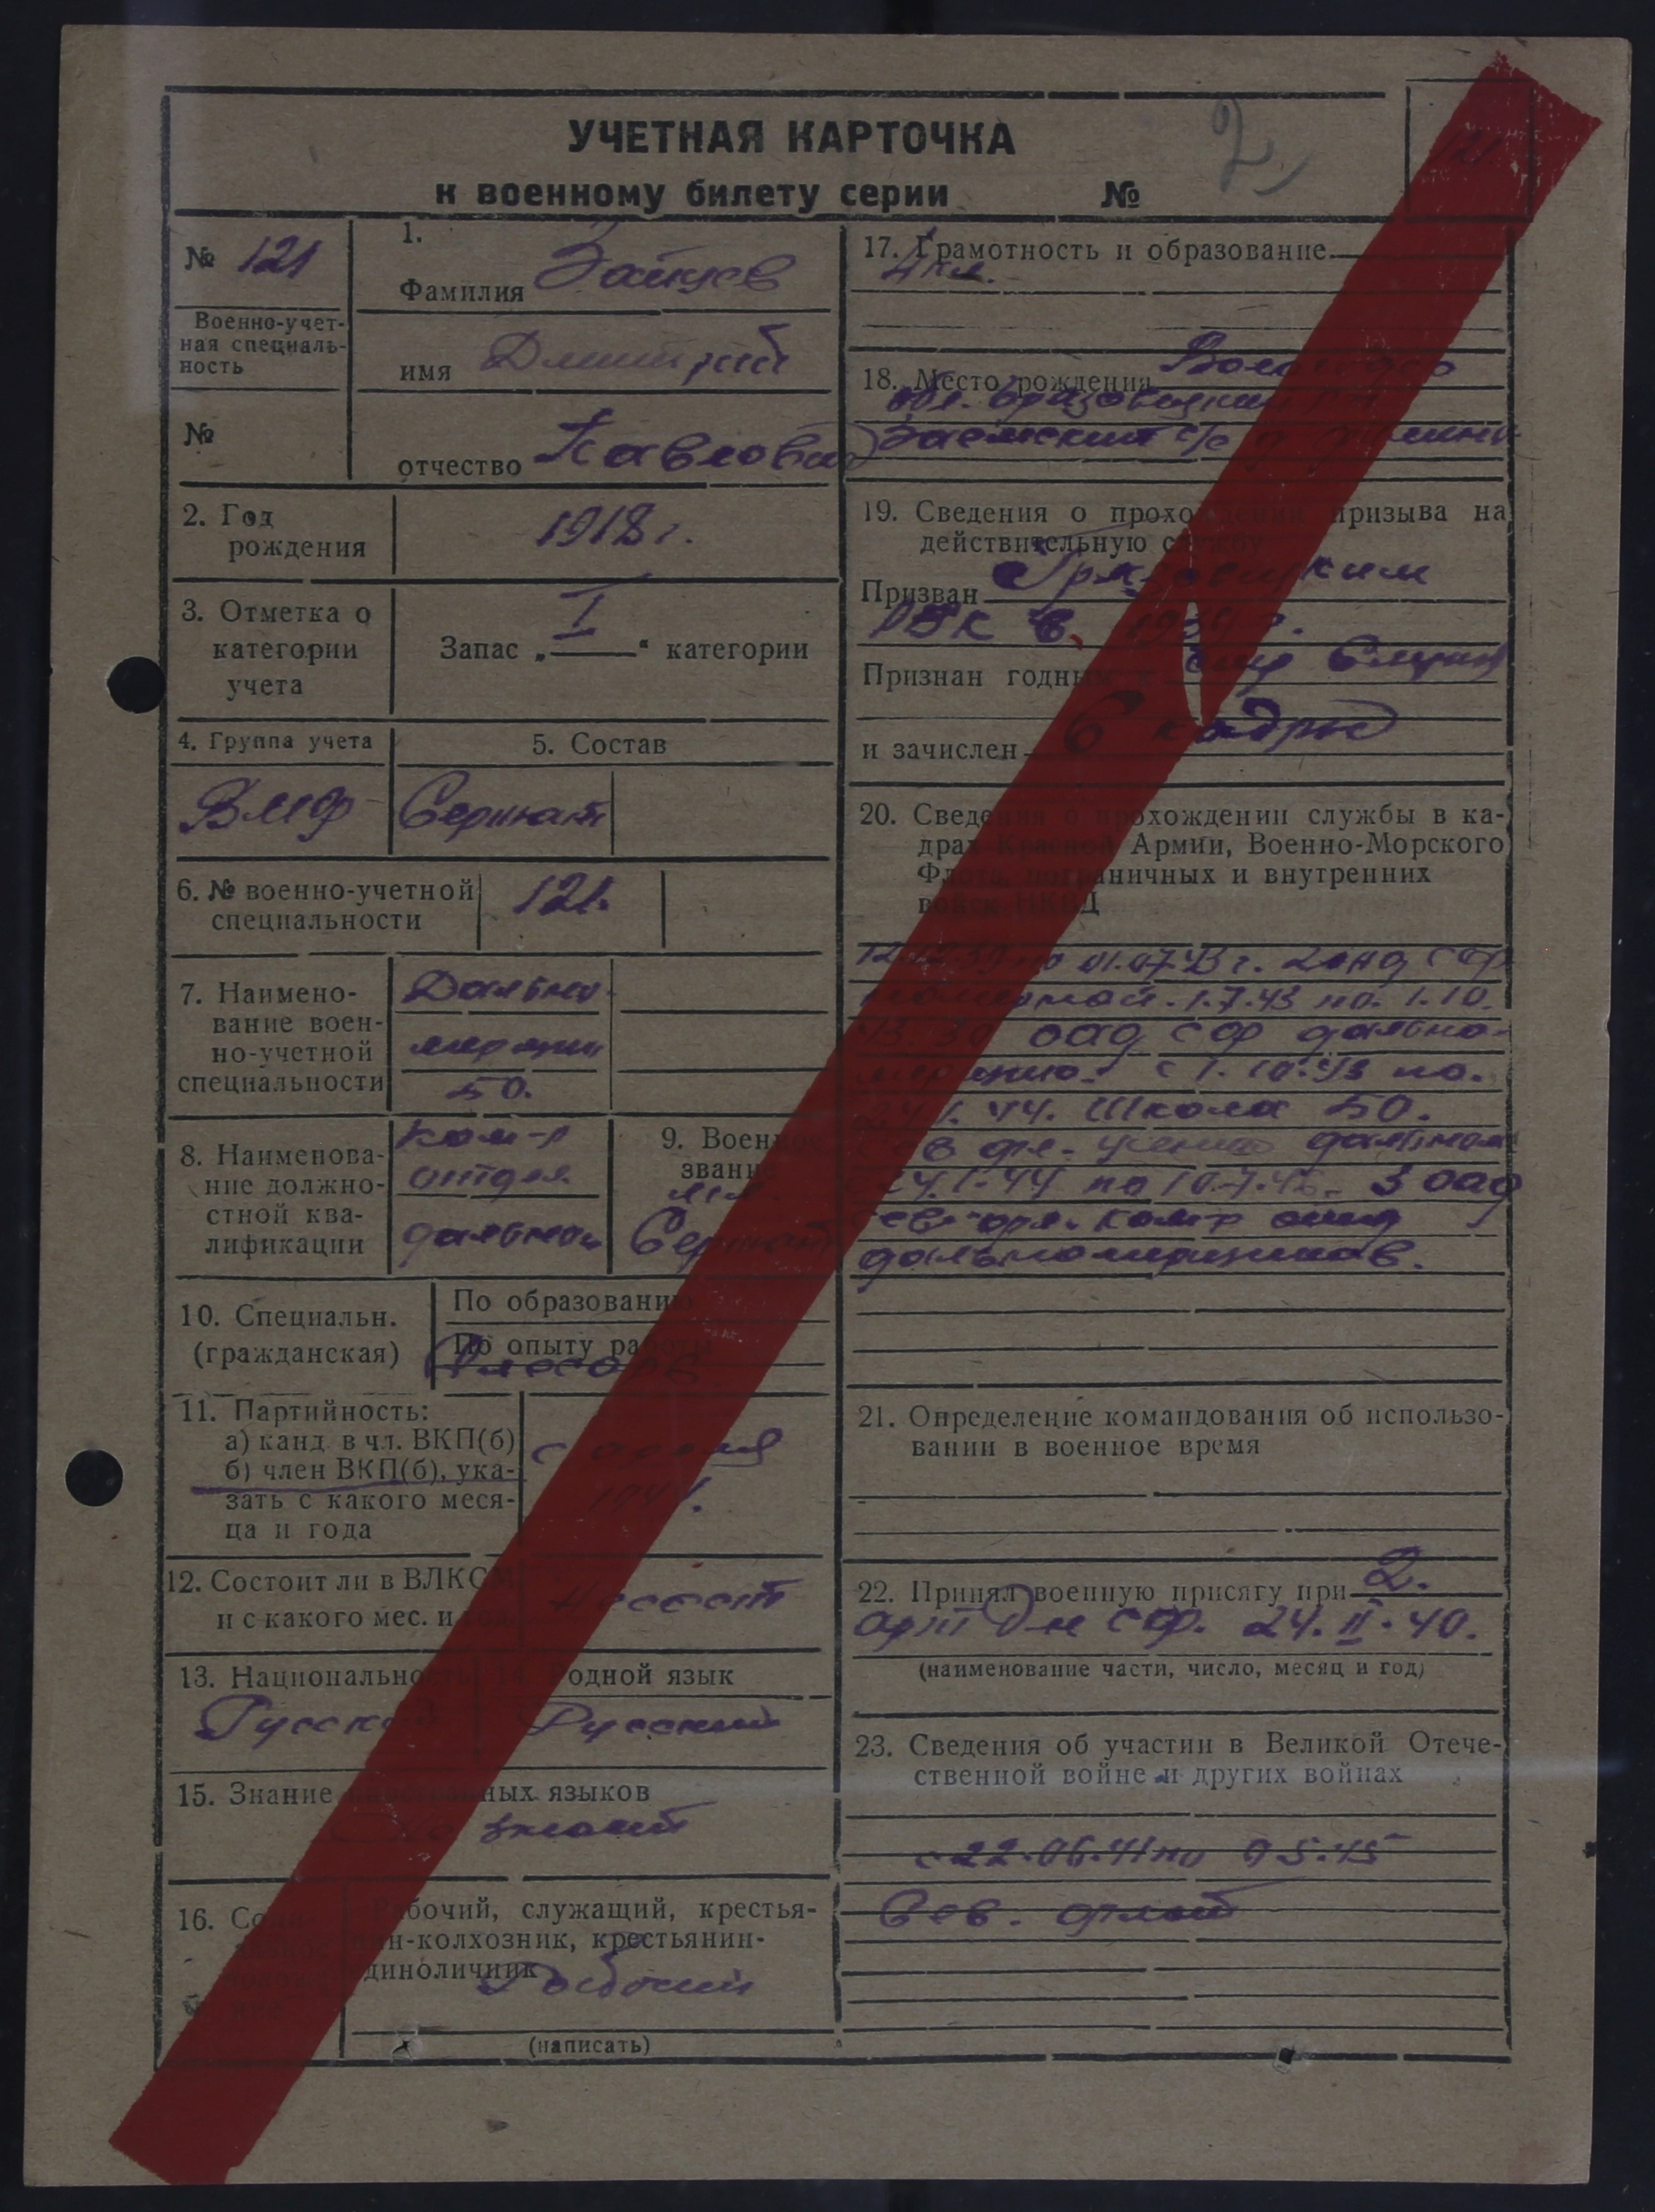 УЧЕТНАЯ КАРТОЧКА
к военному билету серии №
2
№ 121
Военно-учет-
ная специаль-
ность
№
1.
Фамилия Зайцев
имя Дмитрий
отчество Павлович
2. Год
рождения
1918 г.
3. Отметка о
категории
учета
Запас „ I “ категории
4. Группа учета
ВМФ
5. Состав
Сержант
6. № военно-учетной
специальности
121.
7. Наимено-
вание воен-
но-учетной
специальности
Дально-
мерщик
БО.
8. Наименова-
ние должно-
стной ква-
лификации
Ком-р
отдел.
дальном
9. Военное
звание
мл.
Сержант
10. Специальн.
(гражданская)
По образованию
По опыту работы
Слесарь
11. Партийность:
а) канд. в чл. ВКП(б)
б) член ВКП(б), ука-
зать с какого меся-
ца и года
12. Состоит ли в ВЛКСМ
и с какого мес. и год.
13. Национальность
Русский
14. Родной язык
Русский
15. Знание иностранных языков
не знает
16.
Рабочий, служащий, крестья-
нин-колхозник, крестьянин-
единоличник
Рабочий
(написать)
17. Грамотность и образование
4 кл.
18. Место рождения Вологодс
обл. Грязовецкий
Заемский с/с д
19. Сведения о прохождении призыва на
действительную службу
Призван Грязовецким
РВК в 1939 г.
Признан годным к
и зачислен в кадры
20. Сведения о прохождении службы в ка-
драх Красной Армии, Военно-Морского
Флота, пограничных и внутренних
войск НКВД
12.12.39 по 01.07.43 г. СФ
1.7.43 по 1.10.
43. оад СФ дально-
мерщик. с 1.10.43 по.
24.1.44. Школа БО.
Сев фл. ученик дальном
24.1.44 по 3 оад
Сев. фл. Комр отд
дальномерщиков.
21. Определение командования об использо-
вании в военное время
22. Принял военную присягу при 2.
арт Д-не СФ. 24.II.40.
(наименование части, число, месяц и год)
23. Сведения об участии в Великой Отече-
ственной войне и других войнах
с 22.06.41 по 9.5.45
Сев. флот